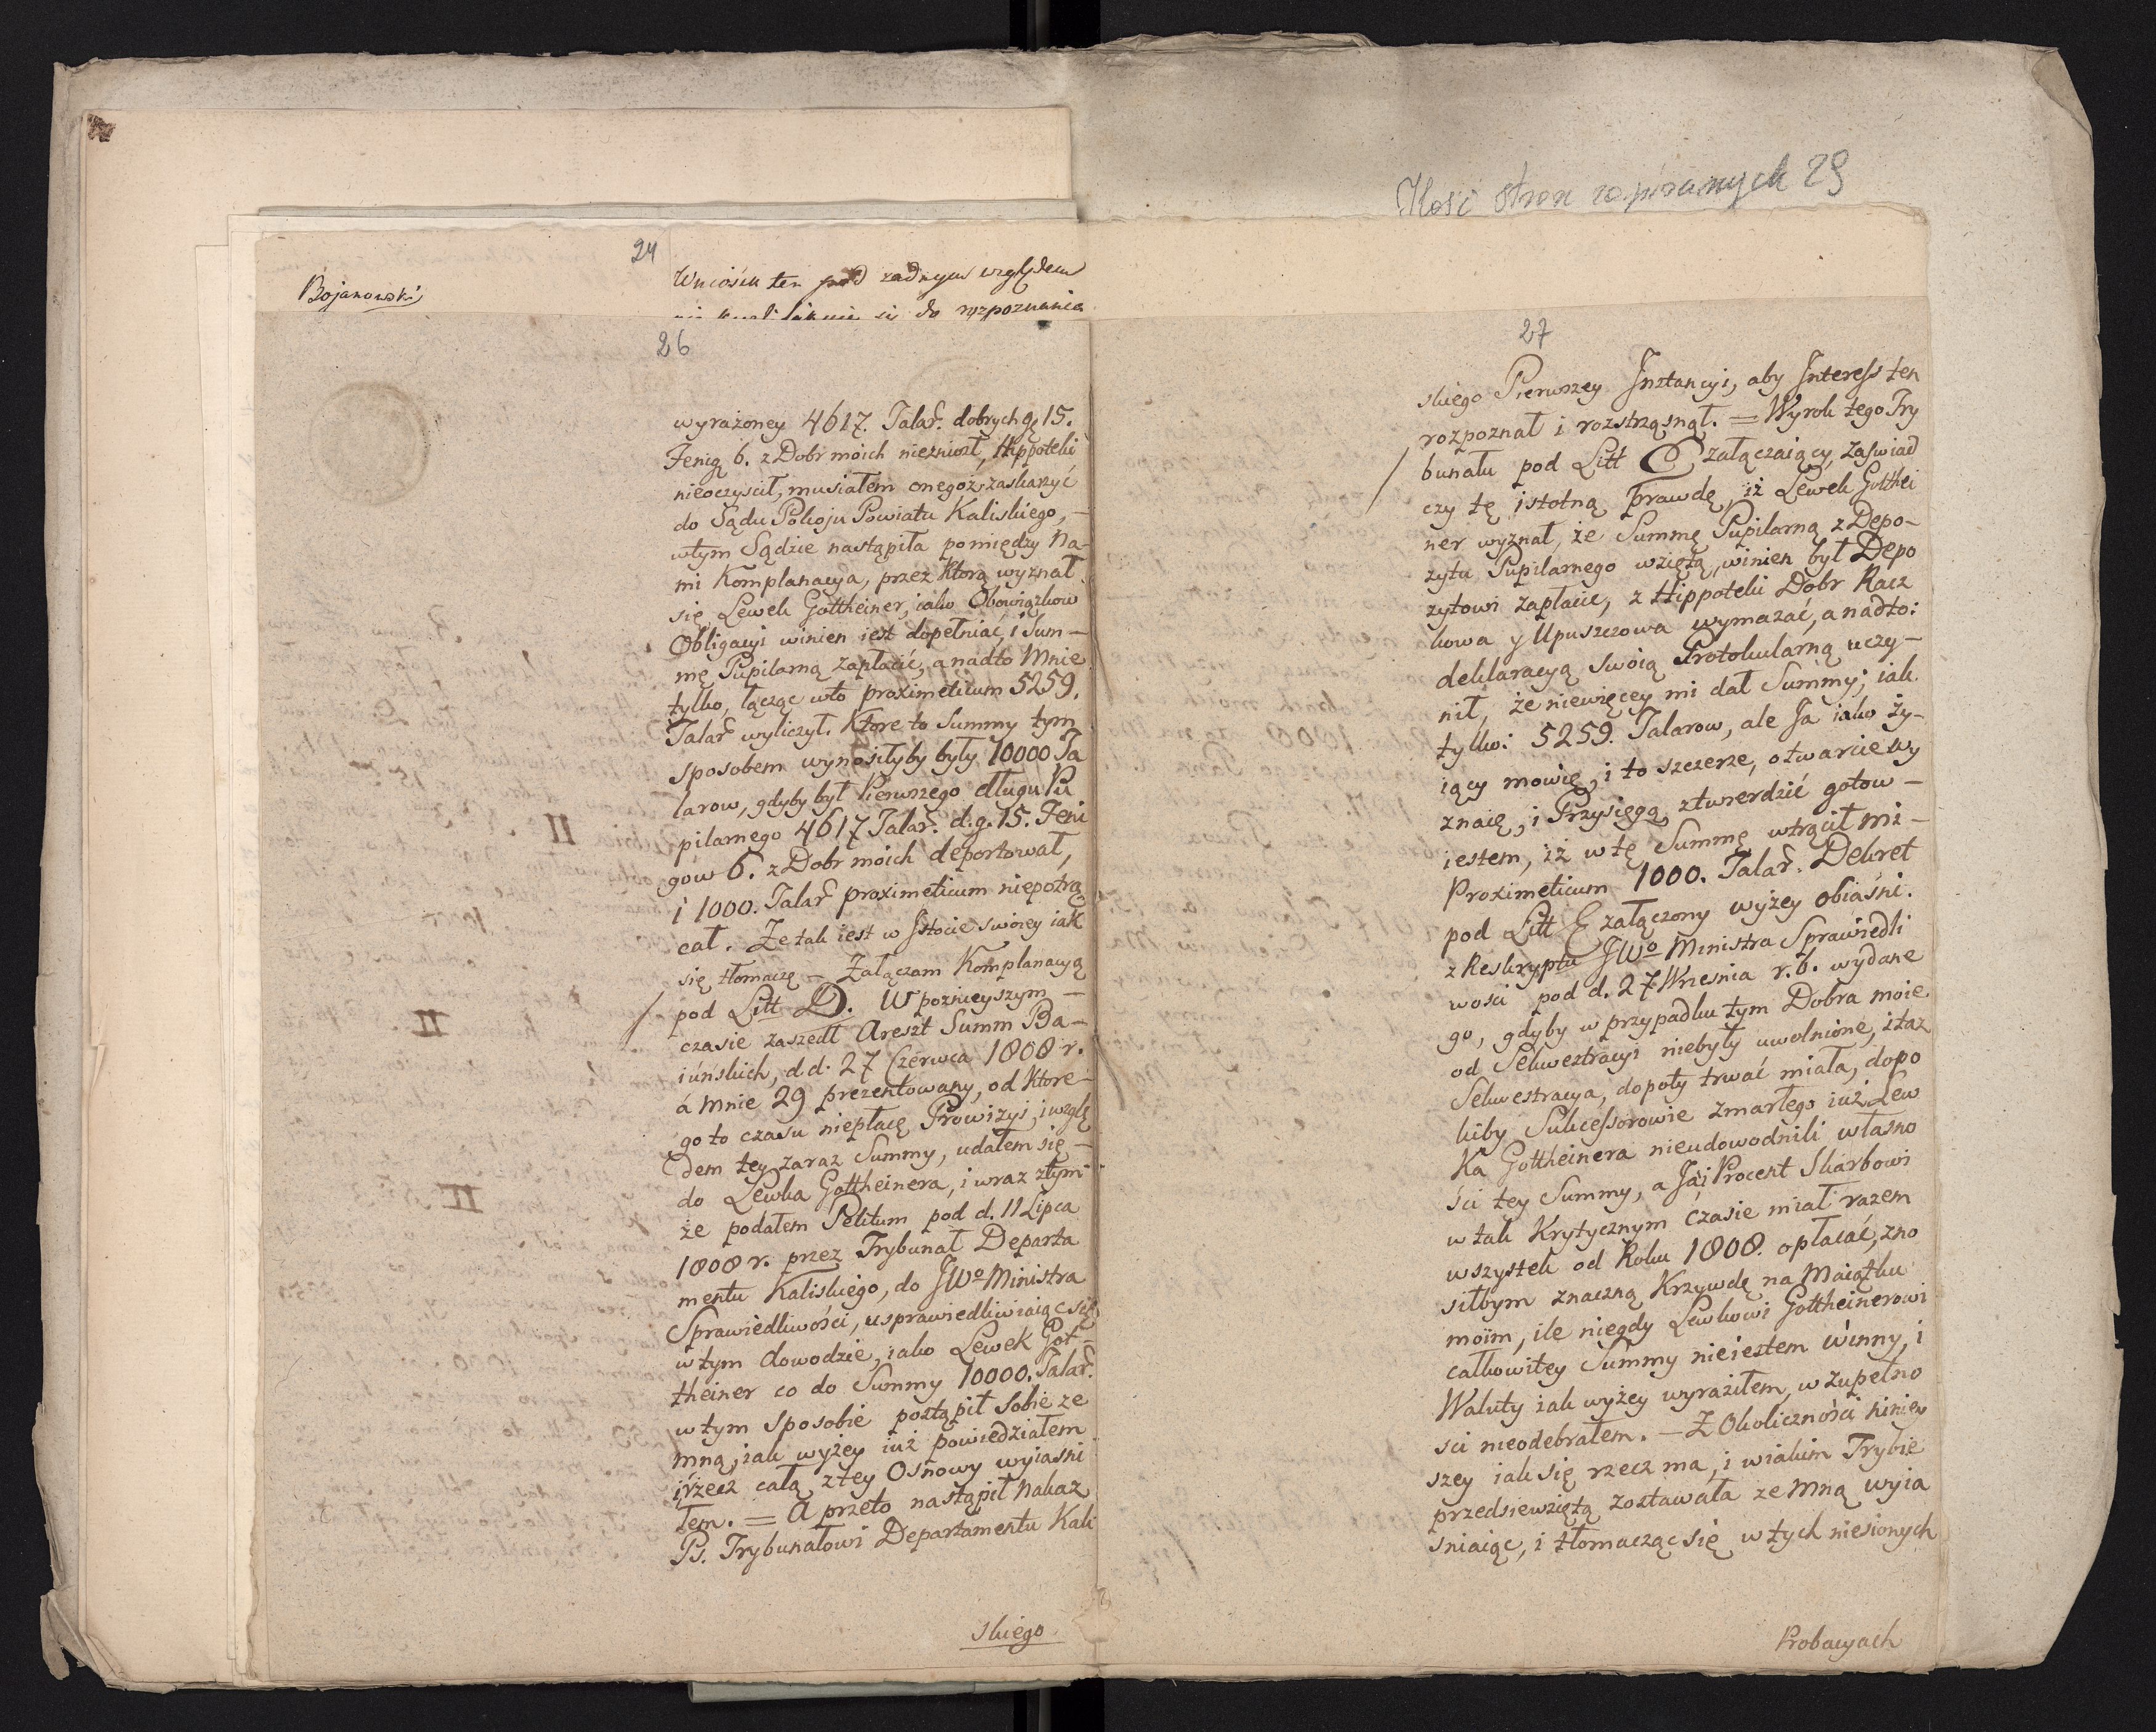 Ilość stron zapisanych 29
24
Bojanowski
Wniosek ten pod żadnym względem
się do rozpoznania
26
wyrażoney 4617. Talar. dobrych gę 15.
Fenig 6. z Dobr moich niezniozł, Hippoteki
nieoczyscił, musiałem onegoz zaskarzyć
do Sądu Pokoju Powiatu Kaliskiego, —
wtym Sądzie nastąpiła pomiędzy Na-
mi Komplanacya, przez Ktorą wyznał
się Lewek Gottheiner, iako Obowiązkow
Obligacyi winien iest dopełniać, i Sum —
mę Pupilarną zapłacić, a nadto Mnie
tylko, łącząc wto proximeticum 5259.
Talar wyliczył. Ktore to Summy tym
sposobem wynosiłyby były 10000 Ta
larow, gdyby był Pierwszego długu Pu
pilarnego 4617 Talar. d. g. 15. Feni
gow 6. z Dobr moich deportował,
i 1000. Talar proximeticum niepotrą
cał. Ze tak iest w Istocie swoiey iak
się tłomaczę — Załączam Komplanacyą
pod Litt D. W poznieyszym —
czasie zaszedł Areszt Summ Ba —
iuńskich, d.d. 27 Czerwca 1808 r.
a Mnie 29 prezentowany, od Ktore-
go to czasu niepłacę Prowizyi, i wzglę
dem tey zaraz Summy, udałem się —
do Lewka Gottheinera, i wraz ztym
że podałem Petitum pod d. 11 Lipca
1808 r. przez Trybunał Departa
mentu Kaliskiego, do JWo Ministra
Sprawiedliwości, usprawiedliwiaiąc się
wtym dowodzie, iako Lewek Got-
theiner co do Summy 10000. Talar.
wtym sposobie postąpił sobie ze
mną, iak wyżey iuż powiedziałem
i rzecz całą z tey Osnowy wyiasni
łem. = A przeto nastąpił Nakaz
Ps. Trybunałowi Departamentu Kali
skiego
27
skiego Pierwszey Instancyi, aby Interess ten
rozpoznał i rozstrząsnął. = Wyrok tego Try
bunału pod Litt E załączaiący, zaswiad
czy tę istotną Prawdę, iż Lewek Gotthei
ner wyznał, że Summę Pupilarną z Depo-
zytu Pupilarnego wziętą, winien był Depo
zytowi zapłacić, z Hippoteki Dobr Racz
kowa y Upuszczowa wymazać, a nadto:
deklaracyą swoią Protokularną uczy —
nił, że niewięcey mi dał Summy; iak
tylko: 5259. Talarow, ale Ja iako ży-
iący mowię, i to szczerze, otwarcie wy
znaię, i Przysięgą ztwierdzić gotow —
iestem, iż w tę Summę wtrącił mi —
Proximeticum 1000. Talar. Dekret
pod Litt E załączony wyżey obiaśni.
z Reskryptu JWo Ministra Sprawiedli
wosci pod d. 27 Wrzesnia r. b. wydane
go, gdyby w przypadku tym Dobra moie
od Sekwestracyi niebyły uwolnione, i taż
Sekwestracya, dopoty trwać miała, dopo
kiby Sukcessorowie zmarłego iuż Lew
Ka Gottheinera nieudowodnili własno
ści tey Summy, a Ja i Procent Skarbowi
w tak Krytycznym czasie miał razem
wszystek od Roku 1808. opłacać, zno
siłbym znaczną Krzywdę na Maiątku
moim, ile niegdy Lewkowi Gottheinerowi
całkowitey Summy nieiestem winny, i
Waluty iak wyżey wyraziłem, w zupełno
sci nieodebrałem. — Z Okoliczności niniey
szey iak się rzecz ma, i wiakim Trybie
przedsiewziętą zostawała ze Mną wyia
sniaiąc, i tłomacząc się w tych niesionych
Probacyach